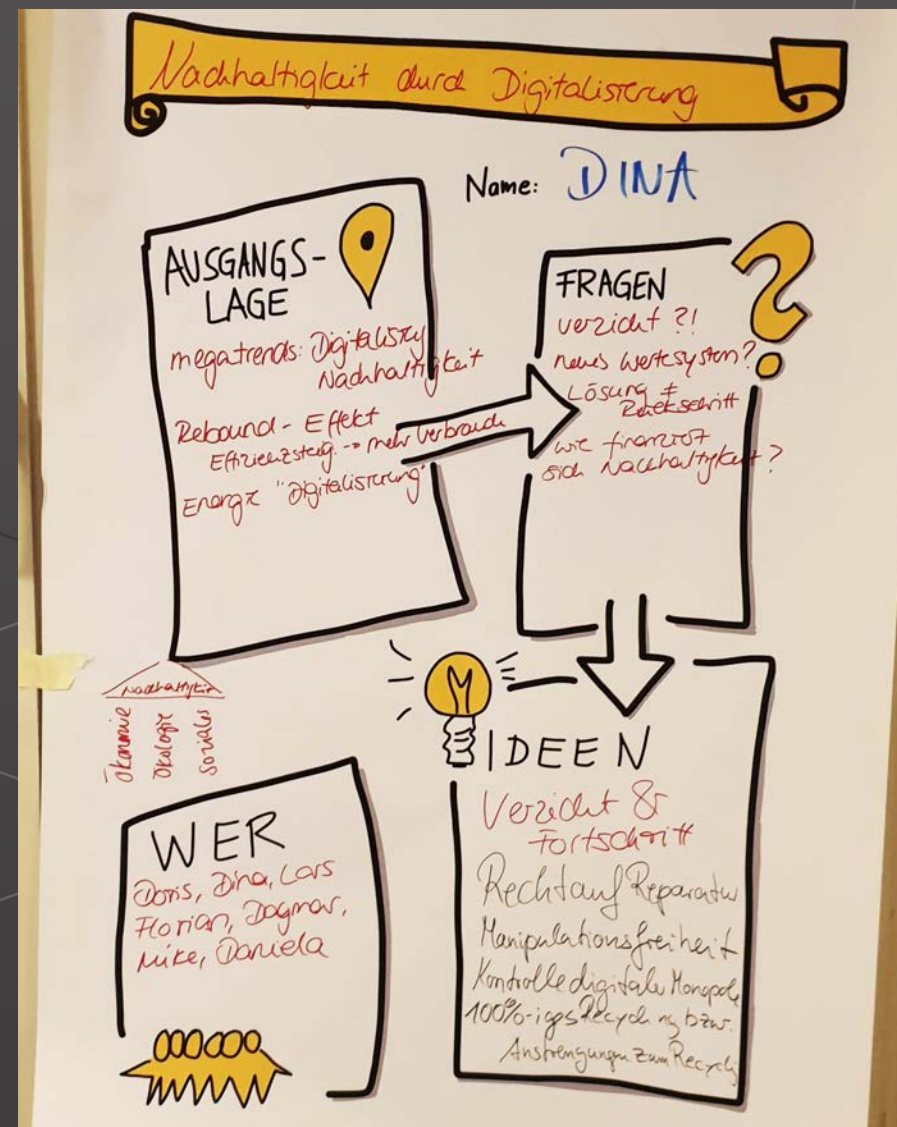 Nachhaltigkeit durch Digitalisierung
Name: DINA
AUSGANGS-
LAGE
megatrends: Digitalisrg
Nachhaltigkeit
Rebound - Effekt
Effizienzsteig. -> mehr Verbrauch
Energie "Digitalisierung"
FRAGEN
verzicht ?!
neues wertesystem?
Lösung ≠
Rückschritt
wie finanziert
sich Nachhaltigkeit?
Nachhaltigkeit
Ökonomie
Ökologie
Soziales
WER
Doris, Dina, Lars
Florian, Dagmar,
Mike, Daniela
IDEEN
Verzicht &
Fortschritt
Recht auf Reparatur
Manipulationsfreiheit
Kontrolle digitaler Monopole
100%-iges Recycling bzw.
Anstrengungen zum Recyclig